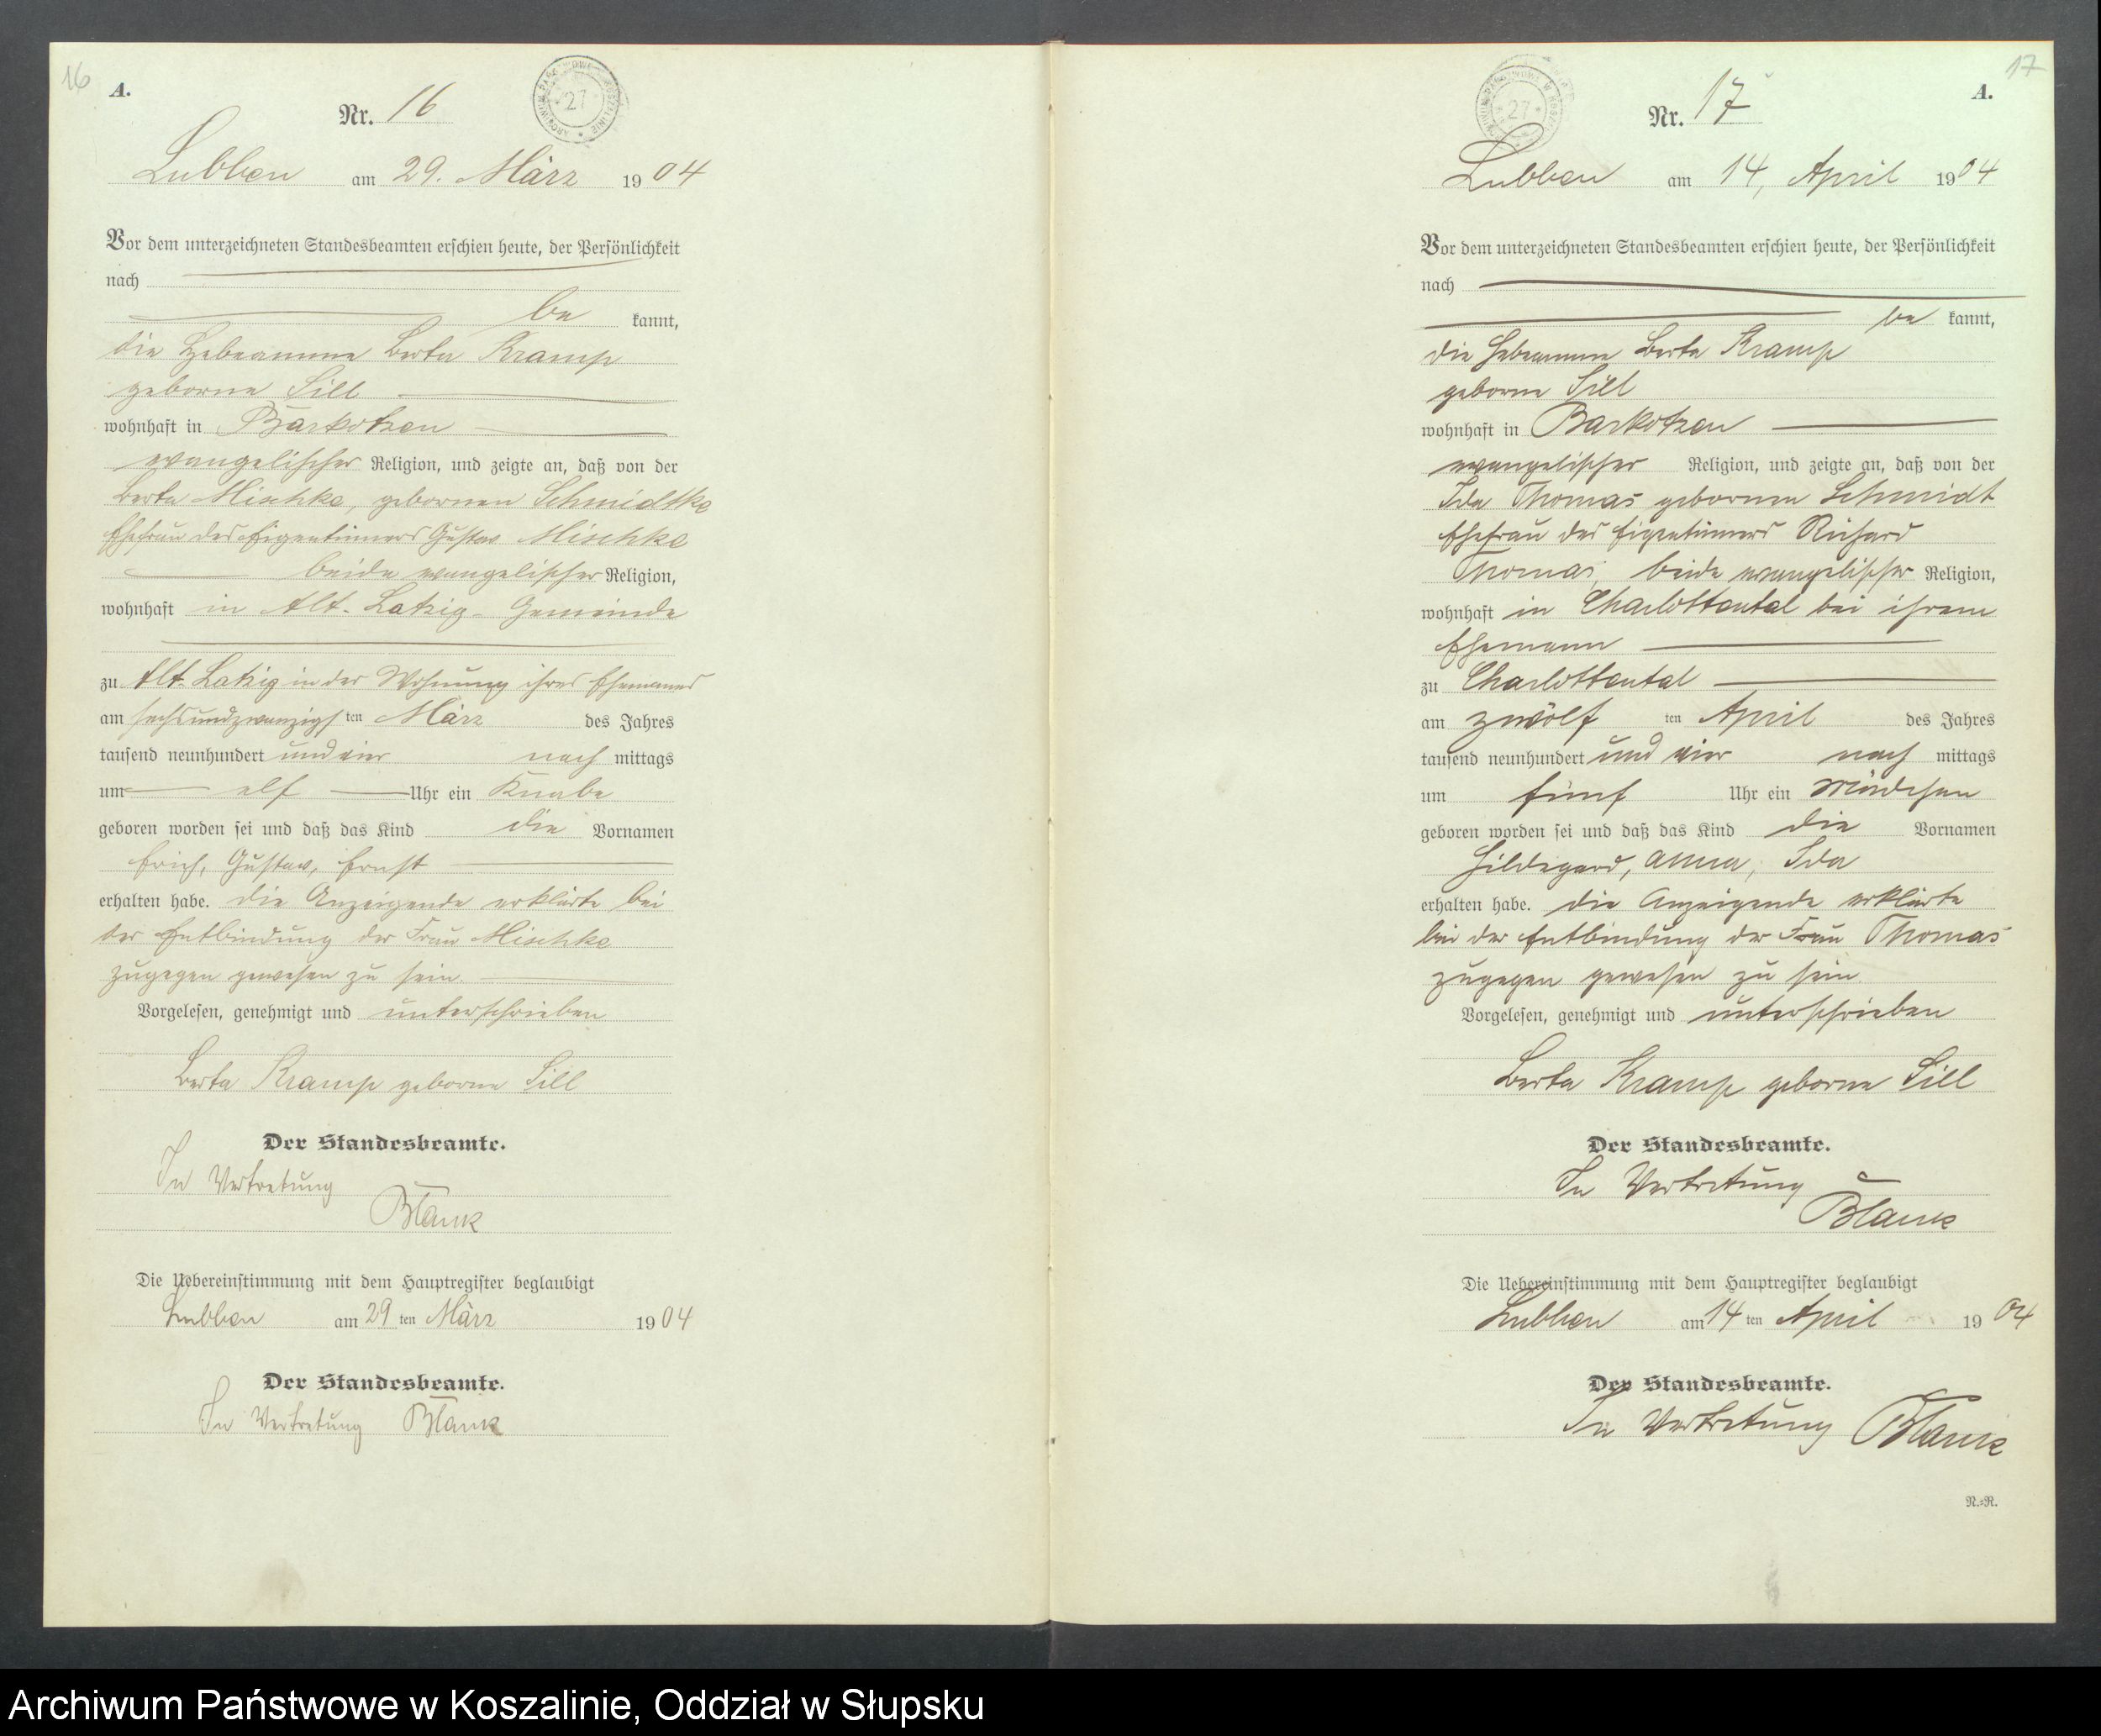 16
A.
Nr. 16
ARCHIWUM PAŃSTWOWE W KOSZALINIE * 27 *
Lubben am 29. März 1904
Vor dem unterzeichneten Standesbeamten erschien heute, der Persönlichkeit
nach
be kannt,
die Hebeamme Berta Kramp
geborne Sill
wohnhaft in Barkotzen
evangelischer Religion, und zeigte an, daß von der
Berta Mischke, gebornen Schmidtke
Ehefrau des Eigentümers Gustav Mischke
beide evangelischer Religion,
wohnhaft in Alt-Latzig-Gemeinde
zu Alt-Latzig in der Wohnung ihres Ehemannes
am sechsundzwanzigsten März des Jahres
tausend neunhundert und vier nachmittags
um elf Uhr ein Knabe
geboren worden sei und daß das Kind die Vornamen
Erich, Gustav, Ernst
erhalten habe. Die Anzeigende erklärte bei
der Entbindung der Frau Mischke
zugegen gewesen zu sein.
Vorgelesen, genehmigt und unterschrieben
Berta Kramp geborne Sill
Der Standesbeamte.
In Vertretung
Blank
Die Uebereinstimmung mit dem Hauptregister beglaubigt
Lubben am 29 ten März 1904
Der Standesbeamte.
In Vertretung Blank
17
A.
Nr. 17
27
Lubben am 14. April 1904
Vor dem unterzeichneten Standesbeamten erschien heute, der Persönlichkeit
nach
be kannt,
die Hebeamme Berta Kramp
geborne Sill
wohnhaft in Barkotzen
evangelischer Religion, und zeigte an, daß von der
Ida Thomas gebornen Schmidt
Ehefrau des Eigentümers Richard
Thomas, beide evangelischer Religion,
wohnhaft in Charlottental bei ihrem
Ehemann
zu Charlottental
am zwölf ten April des Jahres
tausend neunhundert und vier nachmittags
um fünf Uhr ein Mädchen
geboren worden sei und daß das Kind die Vornamen
Hildegard, Anna, Ida
erhalten habe. Die Anzeigende erklärte
bei der Entbindung der Frau Thomas
zugegen gewesen zu sein.
Vorgelesen, genehmigt und unterschrieben
Berta Kramp geborne Sill
Der Standesbeamte.
In Vertretung
Blank
Die Uebereinstimmung mit dem Hauptregister beglaubigt
Lubben am 14 ten April 1904
Der Standesbeamte.
In Vertretung Blank
N.=R.
Archiwum Państwowe w Koszalinie, Oddział w Słupsku